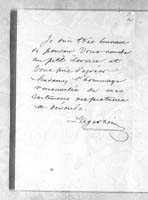 2
Je suis très heureux
de pouvoir vous rendre
ce petit service et
vous prie d'agréer
Madame, l'hommage
renouvelé de mes
sentiments respectueux
et dévoués